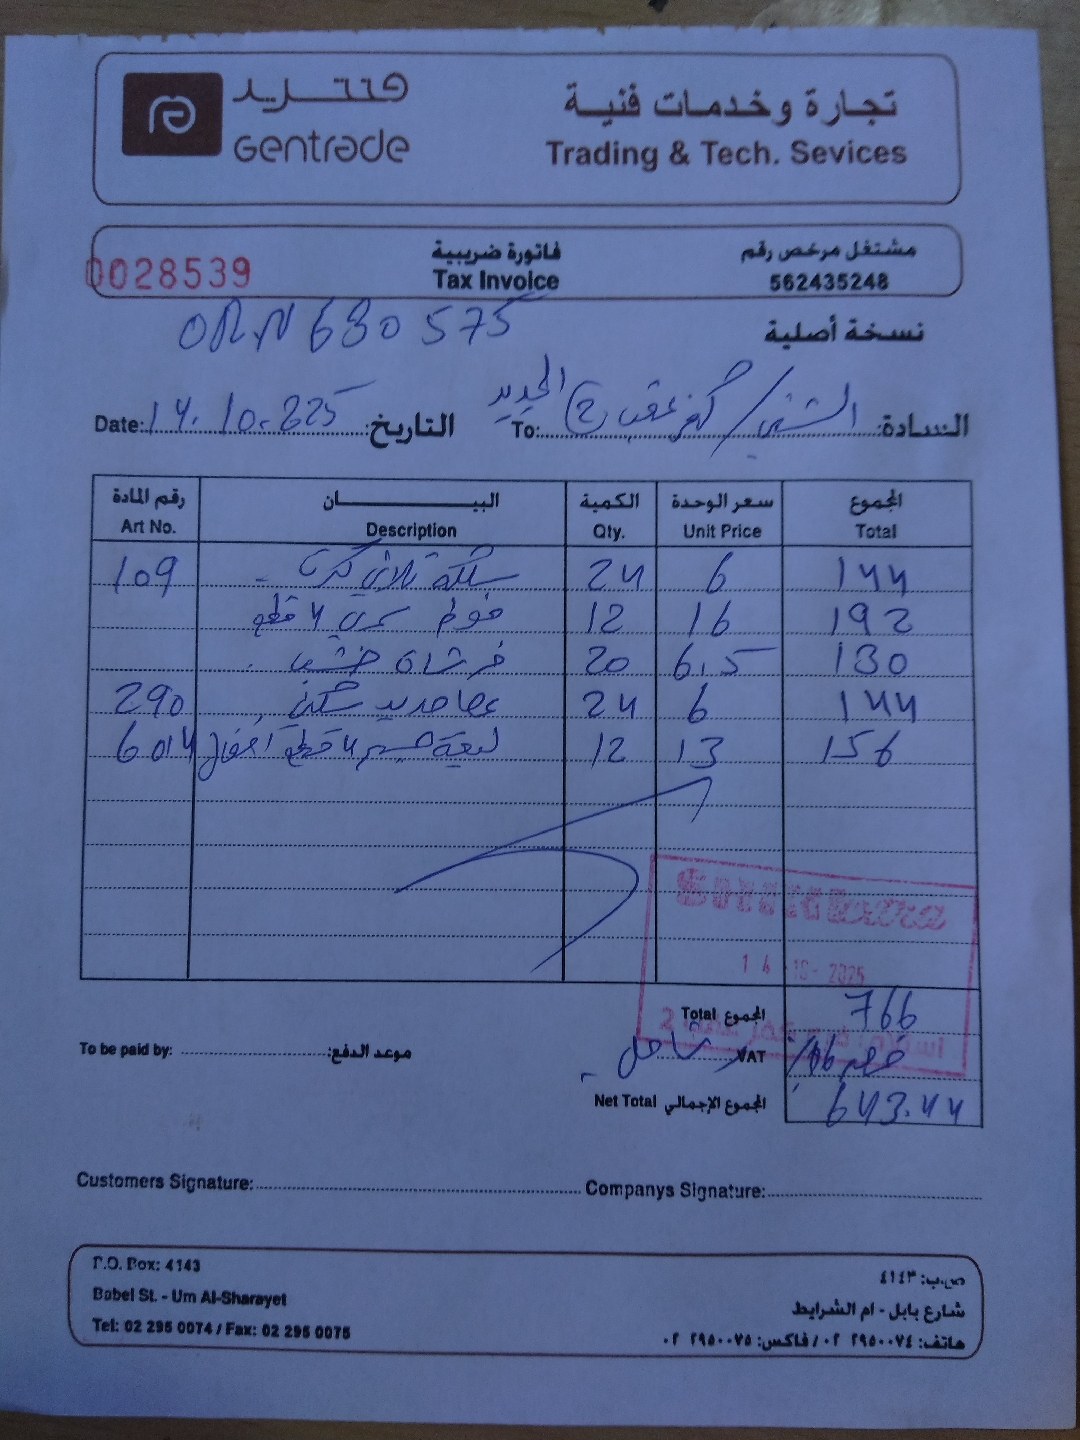 جنتريد
Gentrade
تجارة وخدمات فنية
Trading & Tech. Sevices
0028539
فاتورة ضريبية
Tax Invoice
مشتغل مرخص رقم
562435248
ORN 680575
نسخة أصلية
Date: 14.10.225 التاريخ:
To: الشني / كفر عقب (2) الجديد السادة:
رقم المادة البيـــــان الكمية سعر الوحدة المجموع
Art No. Description Qty. Unit Price Total
109 سلكة ثلاثي 24 6 144
فوطة 4 قطع 12 16 192
فرشاة خشب 20 6.5 130
290 عصا حديد 24 6 144
6014 ليفة 4 قطع 12 13 156
14 -10- 2025
Total المجموع 766
To be paid by: موعد الدفع:
VAT شامل خصم 16%
Net Total المجموع الإجمالي 643.44
Customers Signature: Companys Signature:
P.O. Box: 4143
Babel St. - Um Al-Sharayet
Tel: 02 295 0074 / Fax: 02 295 0075
ص.ب: ٤١٤٣
شارع بابل - ام الشرايط
هاتف: ٠٢ ٢٩٥٠٠٧٤ / فاكس: ٠٢ ٢٩٥٠٠٧٥